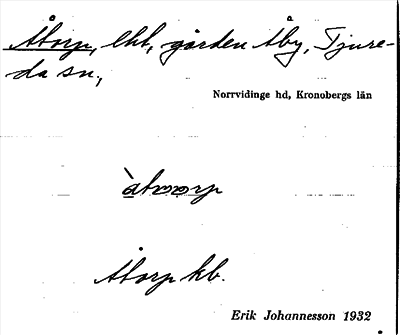 Åtorp, lht, gården Åby, Tjure-
da sn.,
Norrvidinge hd, Kronobergs län
Åtorp kb.
Erik Johannesson 1932